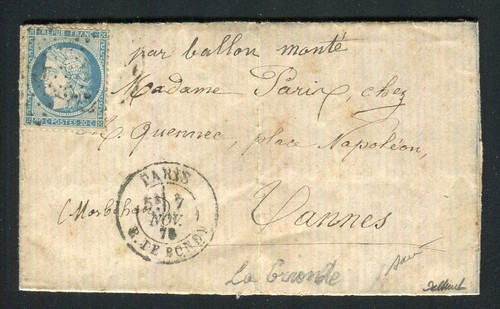 REPUB. FRANC.
20 C POSTES 20 C
par ballon monté
Madame Paris, chez
Quennec, place Napoléon,
(Morbihan) Vannes
PARIS
5E 7
NOV
70
R. DE BONDY
La Gironde